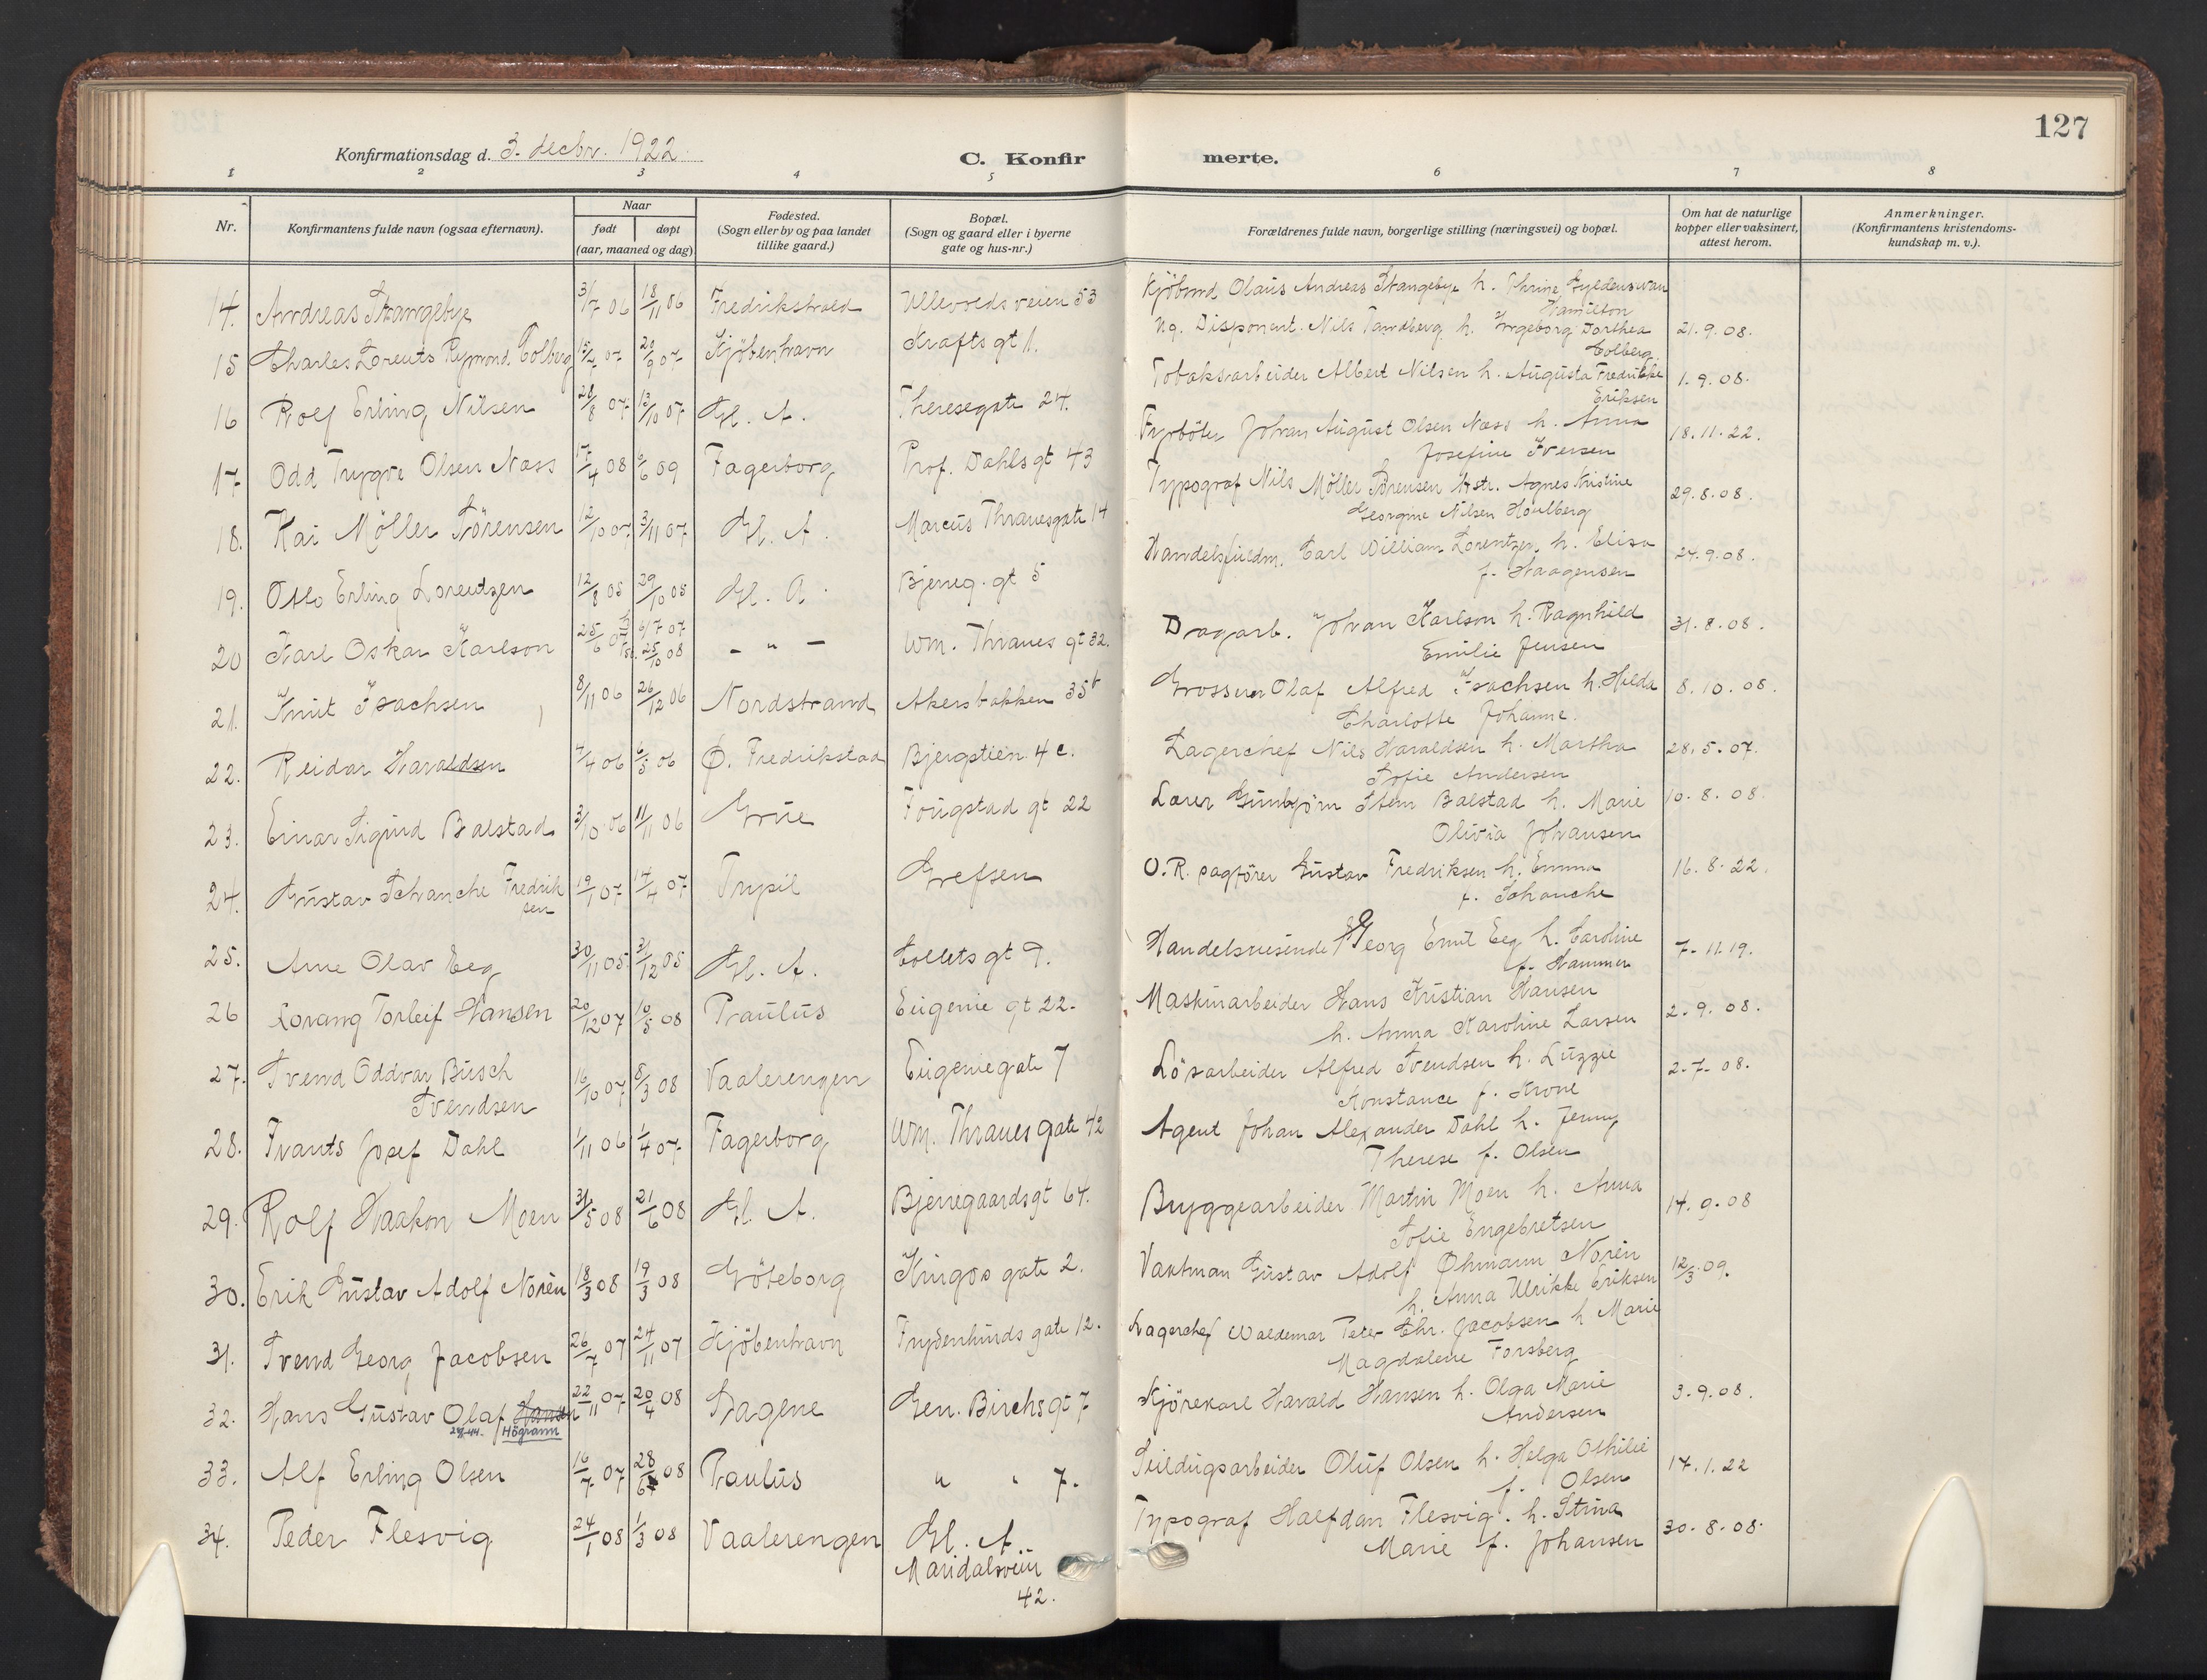 127
Konfirmationsdag d. 3. decbr. 1922.
C. Konfir merte.
1 2 3 4 5 6 7 8
Nr.
Konfirmantens fulde navn (ogsaa efternavn).
Naar
født døpt
(aar, maaned og dag)
Fødested.
(Sogn eller by og paa landet
tillike gaard.)
Bopæl.
(Sogn og gaard eller i byerne
gate og hus-nr.)
Forældrenes fulde navn, borgerlige stilling (næringsvei) og bopæl.
Om hat de naturlige
kopper eller vaksinert,
attest herom.
Anmerkninger.
(Konfirmantens kristendoms-
kundskap m. v.).
14. Andreas Stangebye 31/7 06 18/11 06 Fredrikshald Ullevoldsveien 53 Kjöbmd Olaus Andreas Stangebye h. Thrine Gyldenswan
Hamilton
15 Charles Lorents Rymond. Colberg 15/7 07 20/9 07 Kjöbenhavn Krafts gt 1. Ug. Disponent. Nils Tandberg h. Ingeborg Dorthea 21. 9. 08.
Colberg.
16 Rolf Erling Nilsen 28/8 07 13/10 07 Gl. A. Theresegate 24. Tobaksarbeider Albert Nilsen h. Augusta Fredrikke 1. 9. 08.
Eriksen
17 Odd Trygve Olsen Næss 17/4 08 6/6 09 Fagerborg Prof. Dahls gt 43 Fyrböter Johan August Olsen Næss h. Anna 18. 11. 22.
Josefine Iversen
18. Kai Möller Sörensen 12/10 07 3/11 07 Gl. A. Marcus Thranesgate 14 Typograf Nils Möller Sörensen Agnes Kristine 29. 8. 08.
Georgine Nilsen Houlberg
19. Otto Erling Lorentzen 12/8 05 29/10 05 Gl. A. Bjerreg. gt 5 Handelsfuldm. Carl William Lorentzen h. Elisa 24. 9. 08.
f. Haagensen
20 Karl Oskar Karlson 25/6 07 6/7 07 25/10 08 - " - Wm. Thranes gt 32. Dagarb. Johan Karlson h. Ragnhild 31. 8. 08.
Emilie Jensen
21. Knut Isachsen 8/11 06 26/12 06 Nordstrand Akersbakken 35b Grosserer Olaf Alfred Isachsen h. Hilda 8. 10. 08.
Charlotte Johanne.
22. Reidar Haraldsen 4/4 06 6/5 06 Ø. Fredrikstad Bjergstien 4 c. Lagerchef Nils Haraldsen h. Martha 28. 5. 07.
Sofie Andersen
23. Einar Sigurd Balstad 3/10 06 11/11 06 Grue Fougstad gt 22 Lærer Gunbjörn Stem Balstad h. Marie 10. 8. 08.
Olivia Johansen
24. Gustav Schanche Fredrik 19/1 07 14/4 07 Trysil Grefsen O.R. sagförer Gustav Fredriksen h. Emma 16. 8. 22.
sen f. Schanche
25. Arne Olav Eeg 30/11 05 31/12 05 Gl. A. Collets gt 9. Handelsreisende Georg Emil Eeg h. Caroline 7. 11. 19.
f. Hammer
26 Lorang Torleif Hansen 20/12 07 10/5 08 Paulus Eugenie gt 22. Maskinarbeider Hans Kristian Hansen 2. 9. 08.
h. Anna Karoline Larsen
27. Svend Oddvar Busch 16/10 07 8/3 08 Vaalerengen Eugeniegate 7 Lösarbeider Alfred Svendsen h. Luzzie 2. 7. 08.
Svendsen Konstance f. Krone
28. Frants Josef Dahl 1/11 06 1/4 07 Fagerborg Wm. Thranes gate 42 Agent Johan Alexander Dahl h. Jenny
Therese f. Olsen
29. Rolf Haakon Moen 31/5 08 21/6 08 Gl. A. Bjerregaardsgt 64. Bryggearbeider Martin Moen h. Anna 14. 9. 08
Sofie Engebretsen
30. Erik Gustav Adolf Norén 18/3 08 19/3 08 Göteborg Kingos gate 2. Vaktman Gustav Adolf Öhmann Norén 12/3 09.
h. Anna Ulrikke Eriksen
31. Svend Georg Jacobsen 26/7 07 24/11 07 Kjöbenhavn Frydenlunds gate 12. Lagerchef Waldemar Peter Chr. Jacobsen h Marie
Magdalene Forsberg
32. Hans Gustav Olaf Hansen 22/11 07 20/4 08 Sagene Gen. Birchs gt 7 Kjörekarl Harald Hansen h. Olga Marie 3. 9. 08.
Högrann Andersen
33. Alf Erling Olsen 16/7 07 28/6 08 Paulus " " 7. Seildugsarbeider Oluf Olsen h. Helga Othilie 14. 1. 22
f. Olsen
34. Peder Flesvig 24/1 08 1/3 08 Vaalerengen Gl. A. Typograf Halfdan Flesvig. h. Stina 30. 8. 08.
Maridalsveien Marie f. Johansen
42.